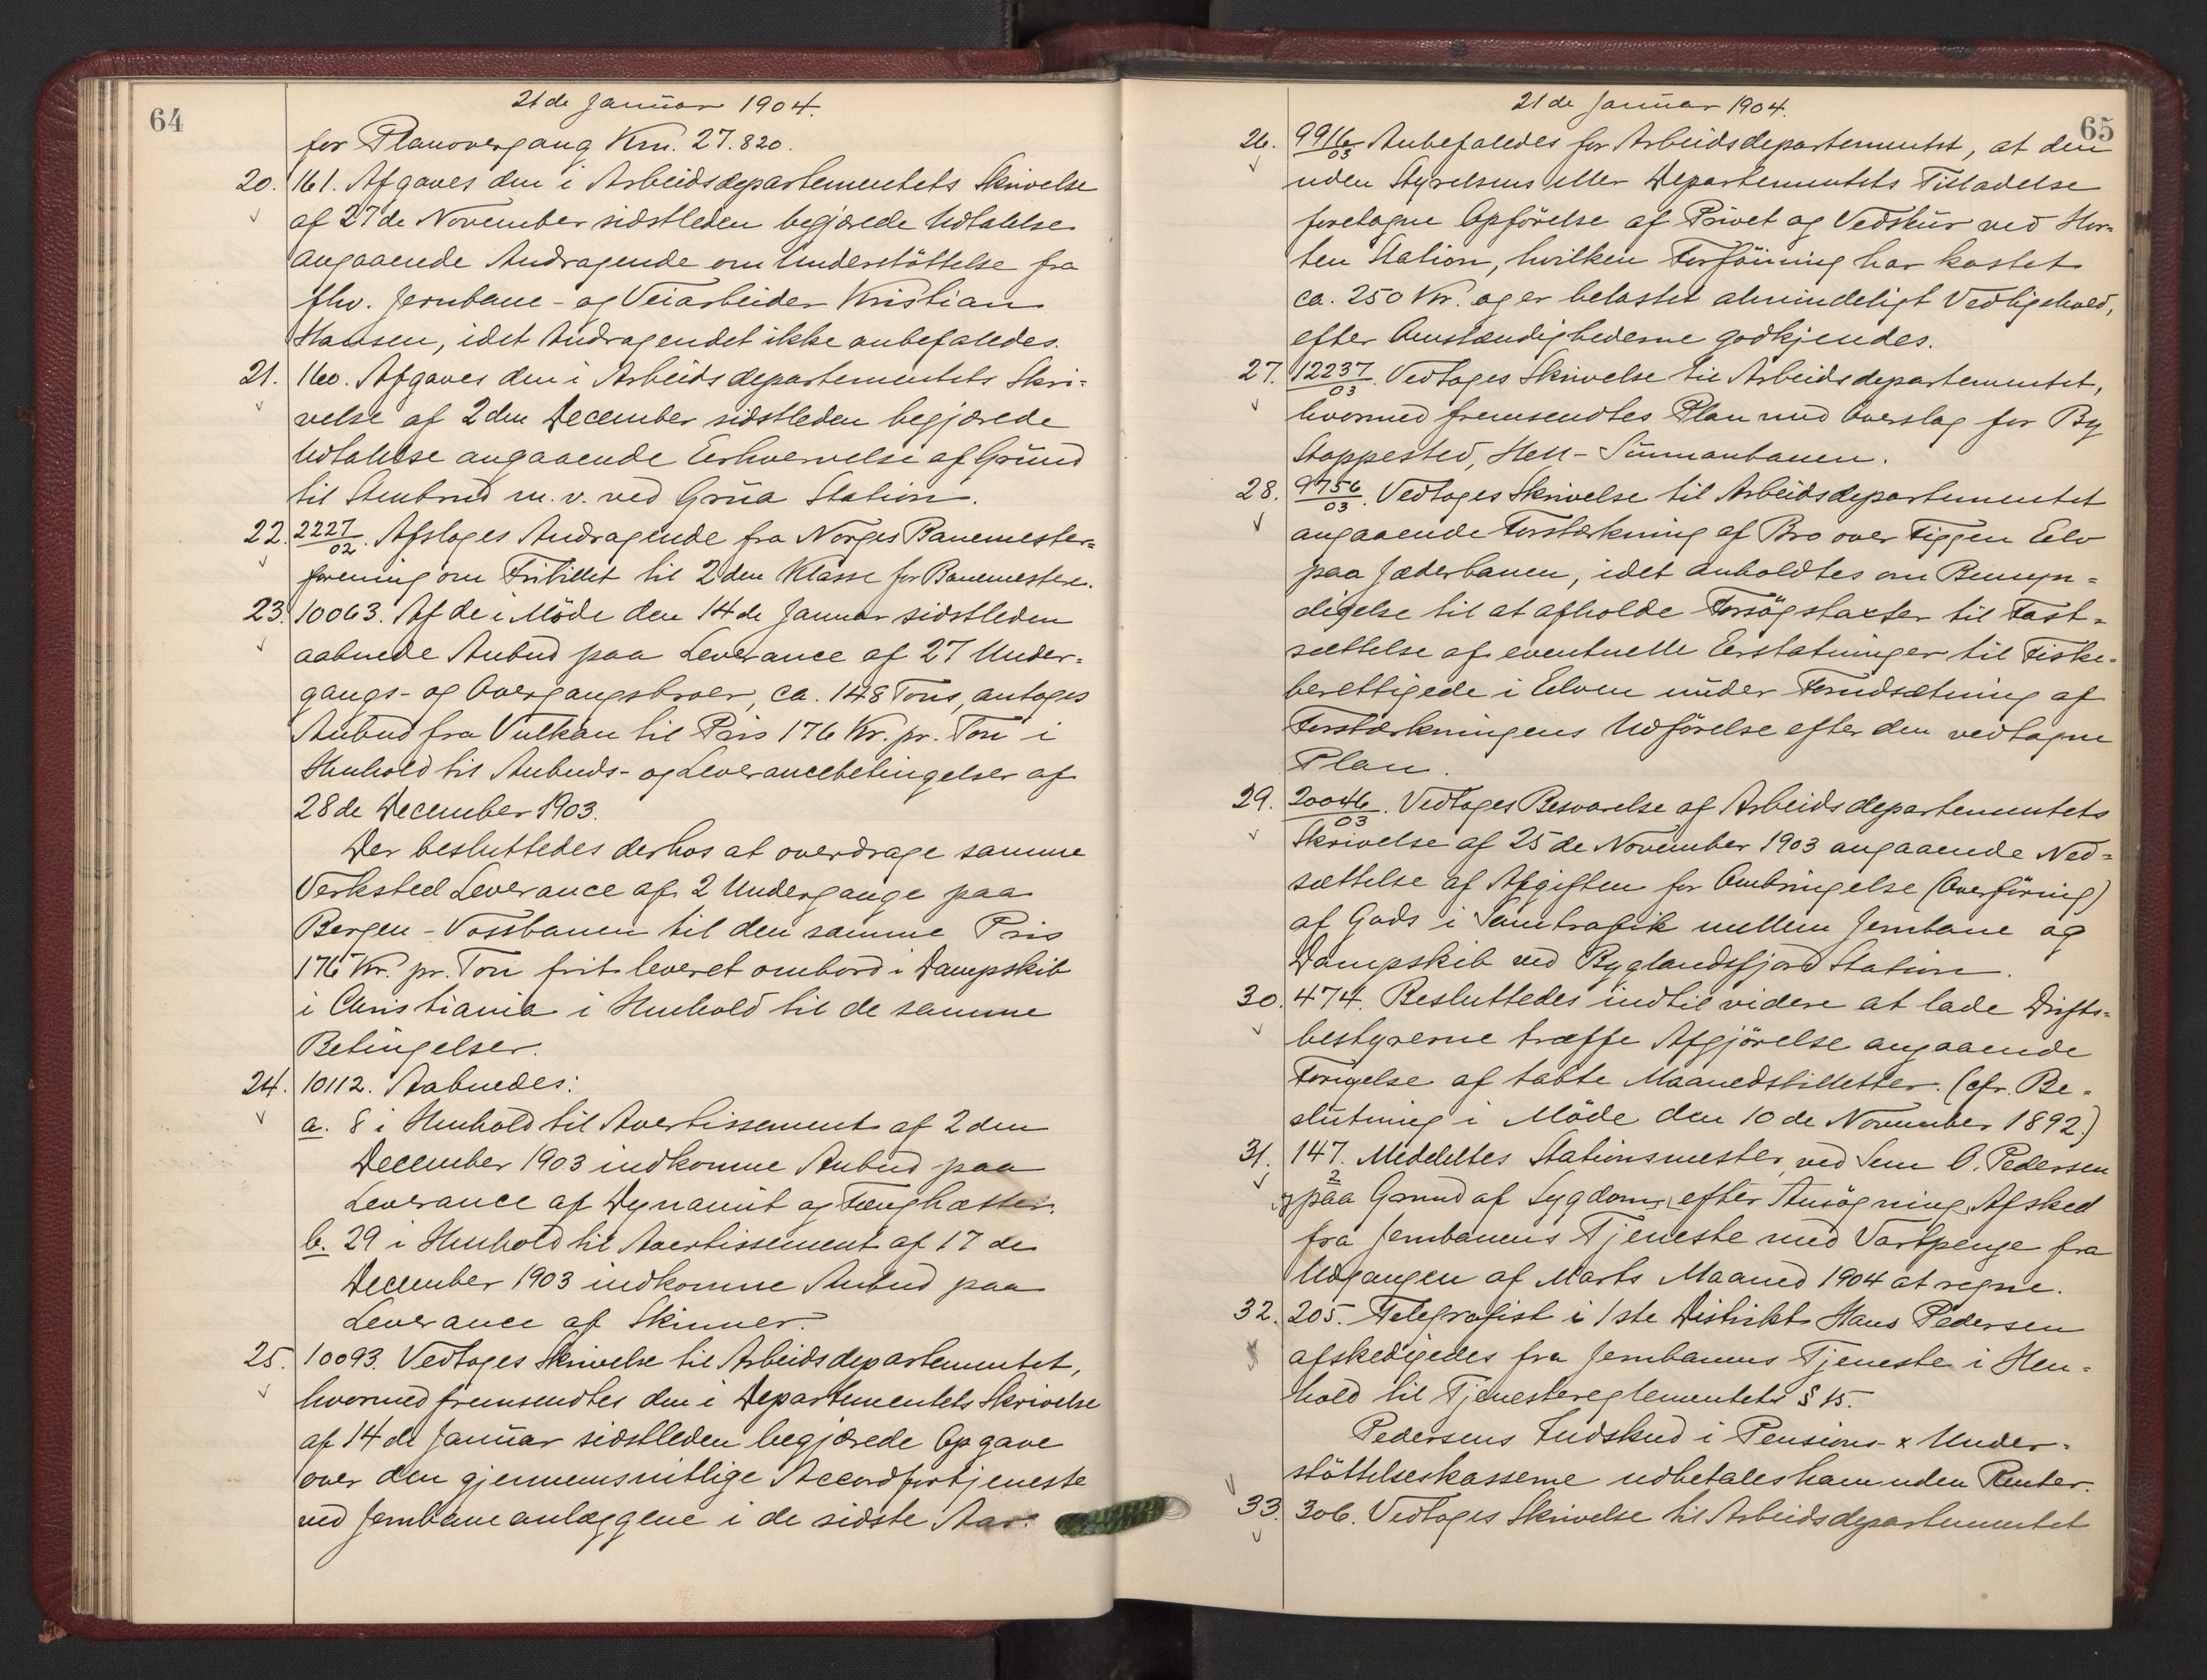 64
21de Januar 1904.
for Planovergang Km. 27.820.
20. 161. Afgaves den i Arbeidsdepartementets Skrivelse
af 27de November sidstleden begjærede Udtalelse
angaaende Andragende om Understöttelse fra
fhv. Jernbane- og Veiarbeider Kristian
Hansen, idet Andragendet ikke anbefaledes.
21. 160. Afgaves den i Arbeidsdepartementets Skri-
velse af 2den December sidstleden begjærede
Udtalelse angaaende Erhvervelse af Grund
til Stenbrud m. v. ved Grua Station.
22. 2227/02. Afsloges Andragende fra Norges Banemester-
forening om Fribillet til 2den Klasse for Banemestere.
23. 10063. Af de i Möde den 14de Januar sidstleden
aabnede Anbud paa Leverance af 27 Under-
gangs- og Overgangsbroer, ca. 148 Tons, antoges
Anbud fra Vulkan til Pris 176 Kr. pr. Ton i
Henhold til Anbuds- og Leverancebetingelser af
28de December 1903.
Der besluttedes derhos at overdrage samme
Verksted Leverance af 2 Undergange paa
Bergen-Vossbanen til den samme Pris
176 Kr. pr. Ton frit leveret ombord i Dampskib
i Christiania i Henhold til de samme
Betingelser.
24. 10112. Aabnedes:
a. 8 i Henhold til Avertissement af 2den
December 1903 indkomne Anbud paa
Leverance af Dynamit og Fænghætter.
b. 29 i Henhold til Avertissement af 17de
December 1903 indkomne Anbud paa
Leverance af Skinner.
25. 10093. Vedtoges Skrivelse til Arbeidsdepartementet,
hvormed fremsendtes den i Departementets Skrivelse
af 14de Januar sidstleden begjærede Opgave
over den gjennemsnitlige Accordfortjeneste
ved Jernbaneanlæggene i de sidste Aar.
65
21de Januar 1904.
26. 9916/03 Anbefaledes for Arbeidsdepartementet, at den
uden Styrelsens eller Departementets Tilladelse
foretagne Opförelse af Privet og Vedskur ved Hor-
ten Station, hvilken Forföining har kostet
ca. 250 Kr. og er belastet almindeligt Vedligehold,
efter Omstændighederne godkjendes.
27. 12237/03. Vedtoges Skrivelse til Arbeidsdepartementet,
hvormed fremsendtes Plan med Overslag for By
Stoppested, Hell-Sunnanbanen.
28. 9756/03. Vedtoges Skrivelse til Arbeidsdepartementet
angaaende Forstærkning af Bro over Figgen Elv
paa Jæderbanen, idet anholdtes om Bemyn-
digelse til at afholde Forsögstaxter til Fast-
sættelse af eventuelle Erstatninger til Fiske-
berettigede i Elven under Forudsætning af
Forstærkningens Udförelse efter den vedtagne
Plan.
29. 20046/03. Vedtoges Besvarelse af Arbeidsdepartementets
Skrivelse af 25de November 1903 angaaende Ned-
sættelse af Afgiften for Ombringelse (Overföring)
af Gods i Samtrafik mellem Jernbane og
Dampskib ved Byglandsfjord Station.
30. 474. Besluttedes indtil videre at lade Drifts-
bestyrerne træffe Afgjörelse angaaende
Fornyelse af tabte Maanedsbilletter. (cfr. Be-
slutning i Möde den 10de November 1892.)
31. 147/2. Meddeltes Stationsmester ved Sem O. Pedersen
paa Grund af Sygdom efter Ansögning Afsked
fra Jernbanens Tjeneste med Vartpenge fra
Udgangen af Marts Maaned 1904 at regne.
32. 205. Telegrafist i 1ste Distrikt Hans Pedersen
afskedigedes fra Jernbanens Tjeneste i Hen-
hold til Tjenestereglementets § 15.
Pedersens Indskud i Pensions- & Under-
stöttelseskasserne udbetales ham uden Renter.
33. 306. Vedtoges Skrivelse til Arbeidsdepartementet